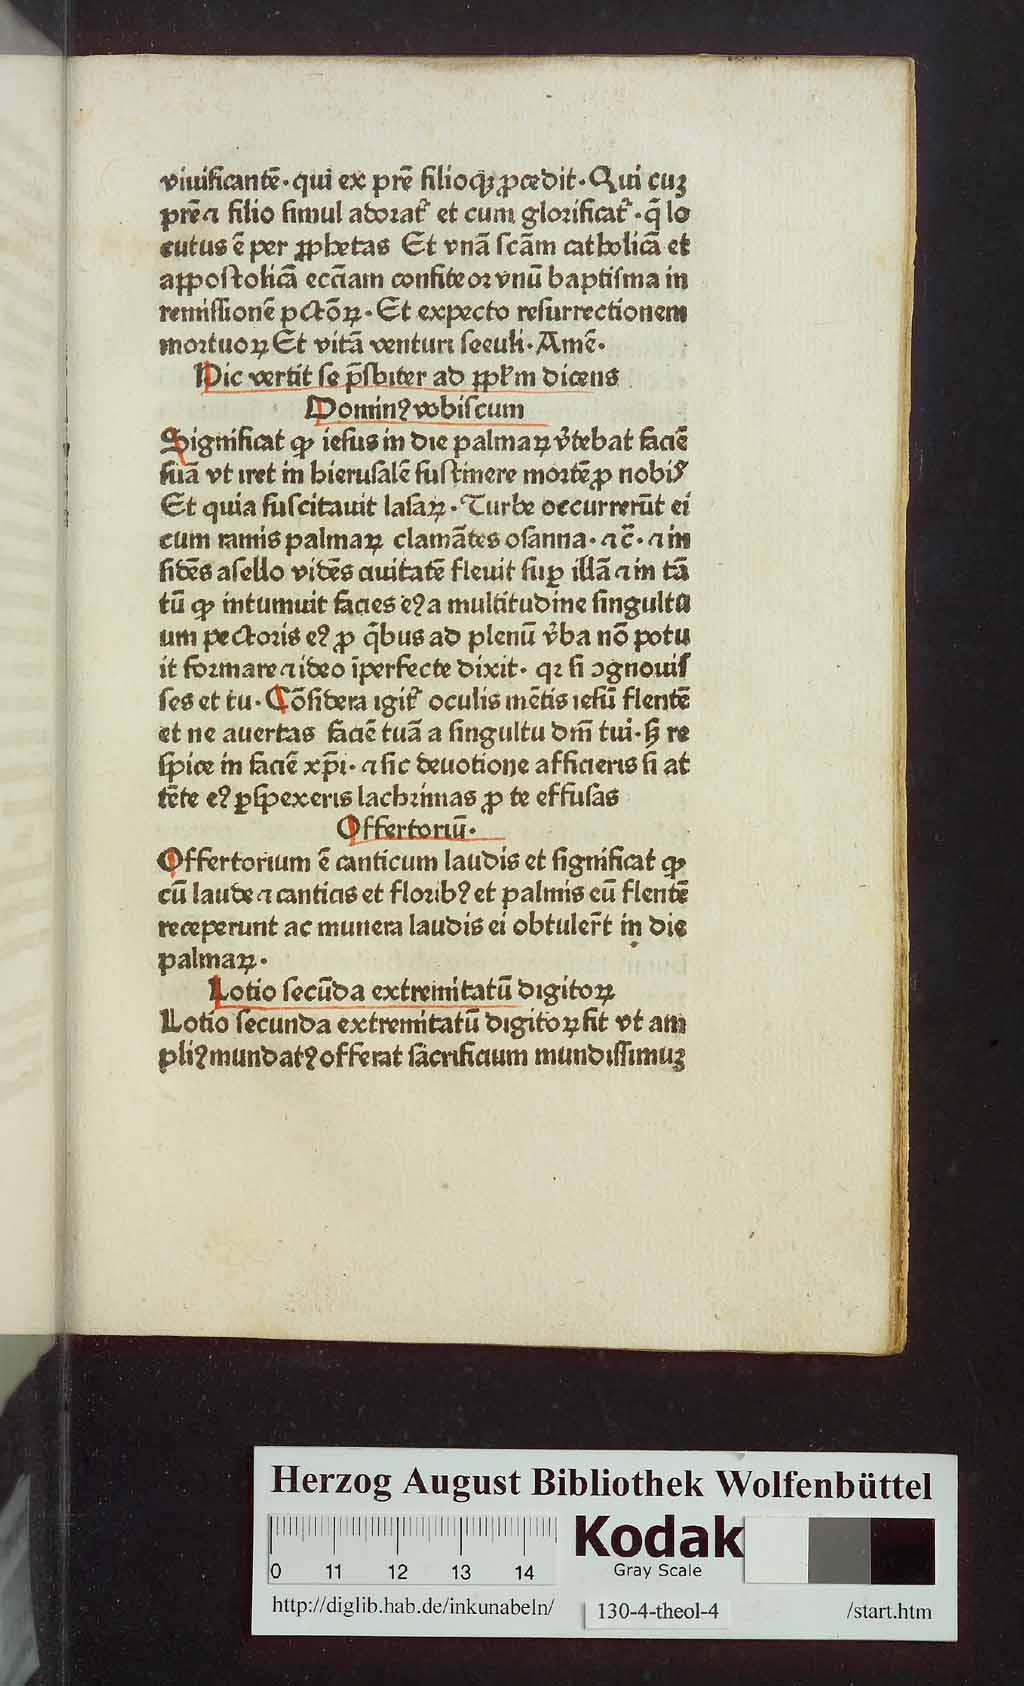 viuificantē·qui ex prē filioqꝫ ꝓcedit·Qui cuꝫ
prē ⁊ filio simul adorat᷑ et cum glorificat᷑·q̄ lo
cutus ē per ꝓphetas Et vnā scām catholicā et
appostolicā eccīam confiteor vnū baptisma in
remissionē pctōꝝ·Et expecto resurrectionem
mortuoꝝ Et vitā venturi seculi·Amē·
Hic vertit se p̄sbiter ad ppl'm dicens
Dominꝰ vobiscum
Significat ꝙ iesus in die palmaꝝ v̓tebat faciē
suā vt iret in hierusalē sustinere mortē ꝓ nobis
Et quia suscitauit lasaꝝ·Turbe occurrerūt ei
cum ramis palmaꝝ clamātes osanna·⁊c̄·⁊ in
sidēs asello vidēs ciuitatē fleuit suꝑ illā ⁊ in tā
tū ꝙ intumuit facies eꝰ a multitudine singultu
um pectoris eꝰ ꝓ q̄bus ad plenū v̓ba nō potu
it formare ⁊ ideo īperfecte dixit· qꝛ si ꝯgnouis
ses et tu·Cōsidera igit᷑ oculis mētis iesū flentē
et ne auertas faciē tuā a singultu dm̄ tui·ꜧ̄ re
spice in faciē xp̄i·⁊ sic deuotione afficieris si at
tēte eꝰ ꝑspexeris lachrimas ꝓ te effusas
Offertoriū·
Offertorium ē canticum laudis et significat ꝙ
cū laude ⁊ canticis et floribꝰ et palmis eū flentē
receperunt ac munera laudis ei obtuler̄t in die
palmaꝝ·
Lotio secūda extremitatū digitoꝝ
Lotio secunda extremitatū digitoꝝ fit vt am
pliꝰ mundatꝰ offerat sacrificium mundissimuꝫ
Herzog August Bibliothek Wolfenbüttel
Kodak
Gray Scale
0 11 12 13 14
http://diglib.hab.de/inkunabeln/ 130-4-theol-4 /start.htm